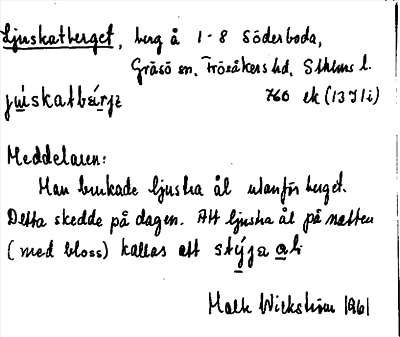 Ljuskatberget, berg å 1-8 Söderboda,
Gräsö sn. Frösåkers hd, Sthlms l.
juiskatbärjɛ 760 ek (13I1i)
Meddelaren:
Man brukade ljustra ål utanför berget.
Detta skedde på dagen. Att ljustra ål på natten
(med bloss) kallas att stýja ål
Wickström 1961